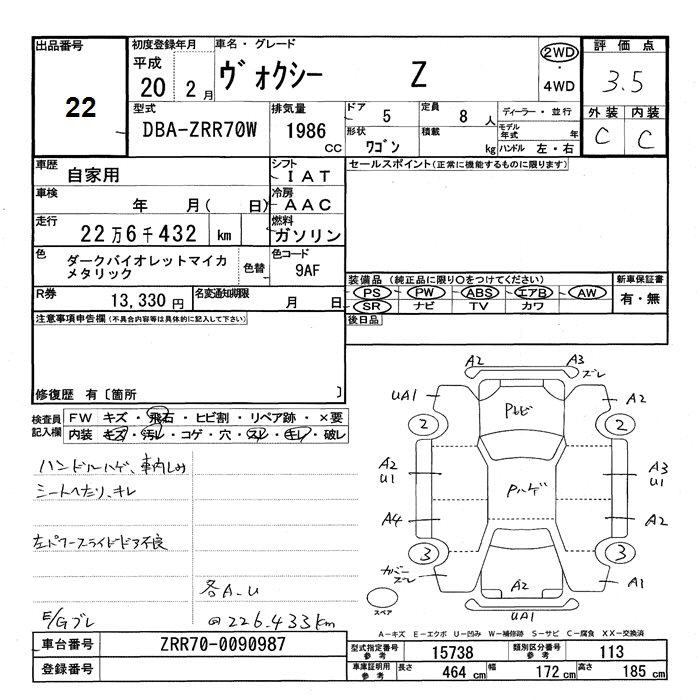 出品番号
22
初度登録年月
平成
20 2月
車名・グレード
ヴォクシー Z
2WD
・
4WD
評価点
3.5
外装 内装
C C
型式
DBA-ZRR70W
排気量
1986 cc
ドア 5
定員 8人
形状 ワゴン
積載 kg
ディーラー・並行
モデル年式 年
ハンドル 左・右
車歴
自家用
シフト
I A T
車検
年 月( 日)
冷房
A A C
走行
22万6千432 km
燃料
ガソリン
色
ダークバイオレットマイカ
メタリック
色替
色コード
9AF
R券
13,330円
名変通知期限
月 日
セールスポイント(正常に機能するものに限ります)
装備品 (純正品に限り○をつけてください)
新車保証書
PS PW ABS エアB AW
有・無
SR ナビ TV カワ
後日品
注意事項申告欄(不具合内容等は具体的に記入して下さい)
修復歴 有〔箇所 〕
検査員
記入欄
FW キズ・飛石・ヒビ割・リペア跡・×要
内装 キズ・汚レ・コゲ・穴・スレ・キレ・破レ
ハンドルハゲ、車内しみ
シートへたり、キレ
左パワースライドドア不良
各A.U
E/Gブレ
@226.433km
A2 A3 ズレ
UA1 A2
Pトビ
2 2
A2 U1
Pハゲ
A3 U1
A4 A2
3 3
カバーズレ
A2
A1
UA1
スペア
A－キズ E－エクボ U－凹み W－補修跡 S－サビ C－腐食 XX－交換済
車台番号
ZRR70-0090987
登録番号
型式指定番号参考
15738
類別区分番号参考
113
車庫証明用参考
長さ 464 cm
幅 172 cm
高さ 185 cm